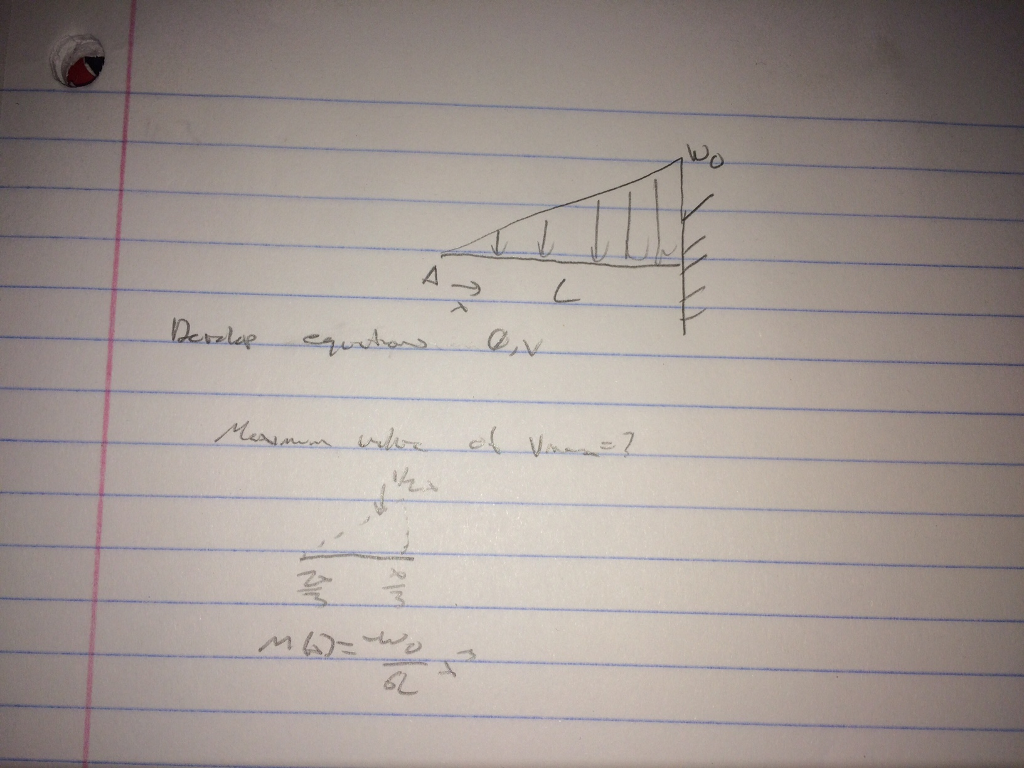 W0
A
x
L
Develop equations θ, v
Maximum value of Vmax=?
2x/3 x/3
M(x)= -w0/6L x³